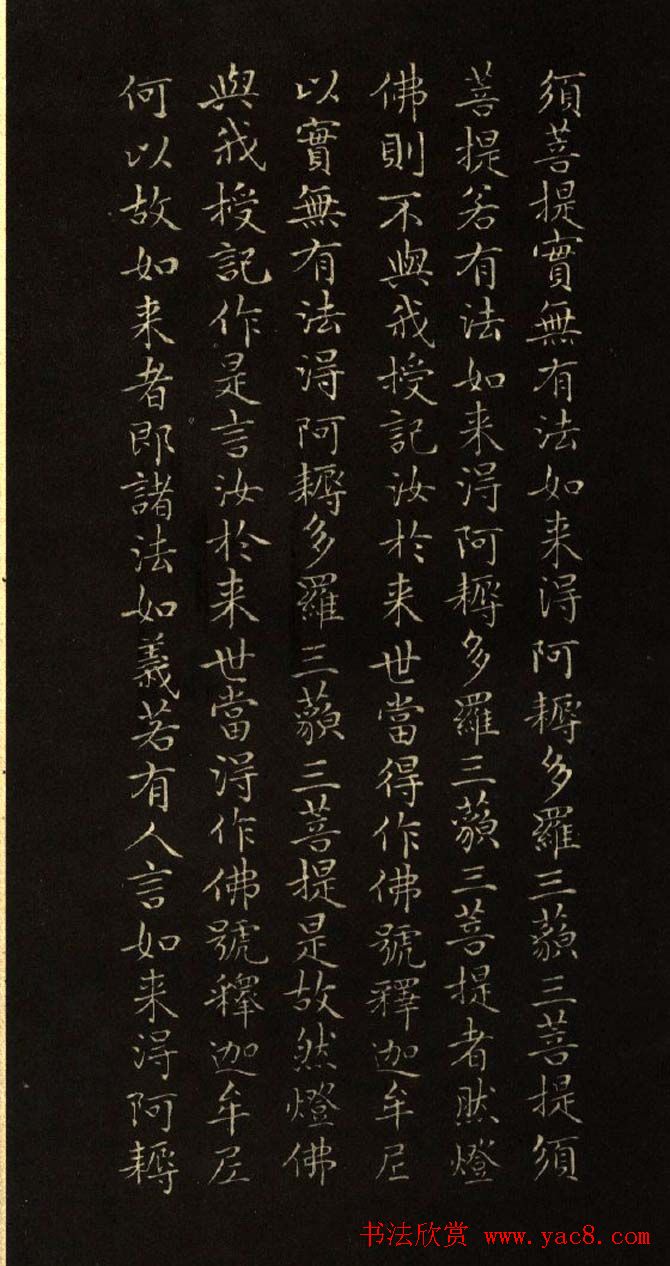 須菩提實無有法如来得阿耨多羅三藐三菩提須
菩提若有法如来得阿耨多羅三藐三菩提者然燈
佛則不與我授記汝於来世當得作佛號釋迦牟尼
以實無有法得阿耨多羅三藐三菩提是故然燈佛
與我授記作是言汝於来世當得作佛號釋迦牟尼
何以故如来者即諸法如義若有人言如来得阿耨
书法欣赏 www.yac8.com